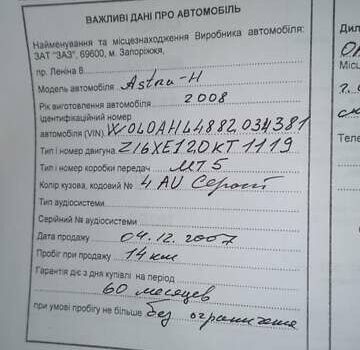 ВАЖЛИВІ ДАНІ ПРО АВТОМОБІЛЬ
Найменування та місцезнаходження Виробника автомобіля:
ЗАТ "ЗАЗ", 69600, м. Запоріжжя,
пр. Леніна 8
Модель автомобіля Astra-H
Рік виготовлення автомобіля 2008
Ідентифікаційний номер
автомобіля (VIN) W0L0AHL4882034381
Тип і номер двигуна Z16XE120KT1119
Тип і номер коробки передач MT5
Колір кузова, кодовий № 4AU Серый
Тип аудіосистеми
Серійний № аудіосистеми
Дата продажу 04.12.2007
Пробіг при продажу 14 км
Гарантія діє з дня купівлі на період
60 месяцев
при умові пробігу не більше без ограничения
Дил
Міс
г.
Теле